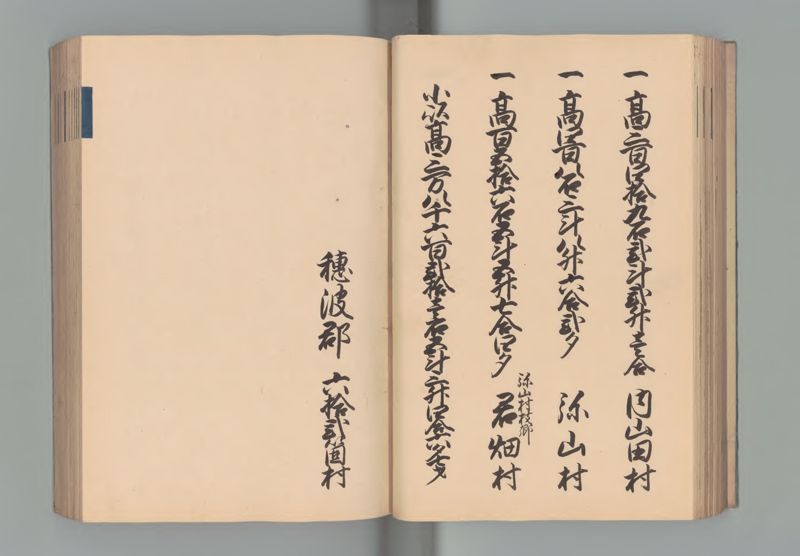 一 高三百四拾九石弐斗弐升壱合 内山田村
一 高四百八石三斗八升六合弐夕 弥山村
一 高百五拾六石五斗五升七合四夕 弥山村枝郷 君畑村
小以高三万八千六百弐拾壱石五斗三升四合
穂波郡 六拾弐箇村